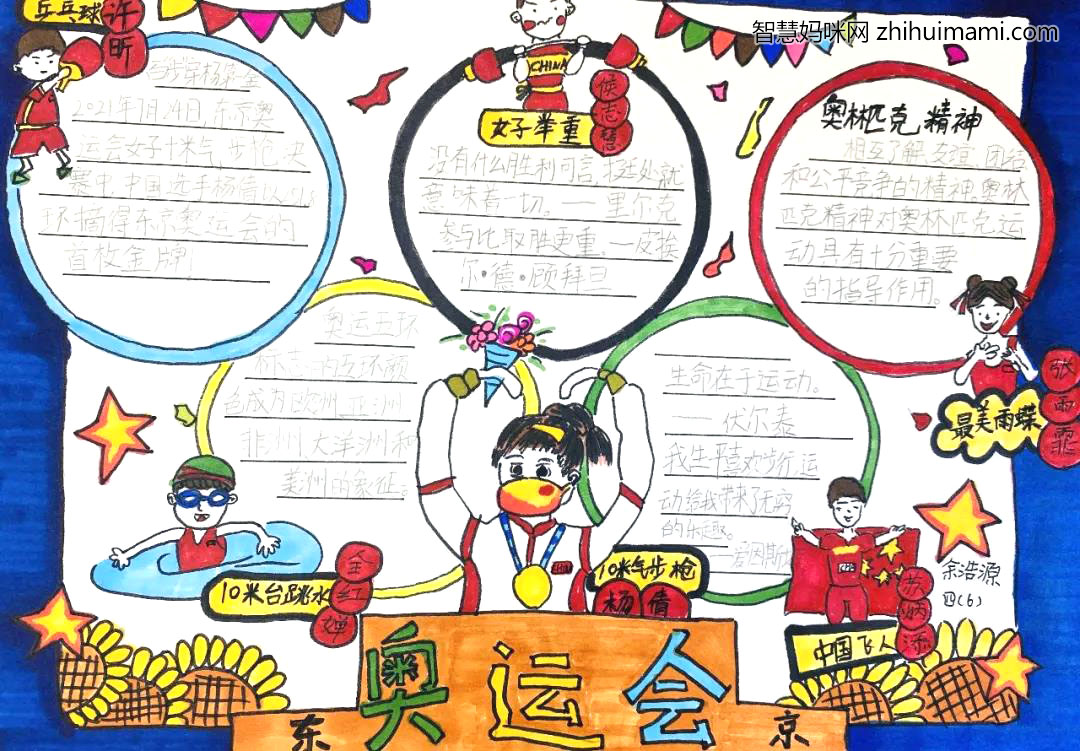 智慧妈咪网 zhihuimami.com
乒乓球
许昕
百步穿杨第一金
2021年7月24日,东京奥
运会女子十米气步枪决
赛中,中国选手杨倩以
环摘得东京奥运会的
首枚金牌!
CHINA
侯志慧
女子举重
没有什么胜利可言,挺
意味着一切。——里尔克
参与比取胜更重。——皮埃
尔·德·顾拜旦
奥林匹克精神
相互了解、友谊、团结
和公平竞争的精神。奥林
匹克精神对奥林匹克运
动具有十分重要
的指导作用。
张雨霏
最美雨蝶
奥运五环
标志的五环颜
色成为欧洲、亚洲
非洲、大洋洲和
美洲的象征。
全红婵
10米台跳水
生命在于运动。
——伏尔泰
我生平喜欢步行,运
动给我带来了无穷
的乐趣。
——爱因斯坦
10米气步枪
杨倩
苏炳添
中国飞人
余浩源
四(6)
奥运会
东京